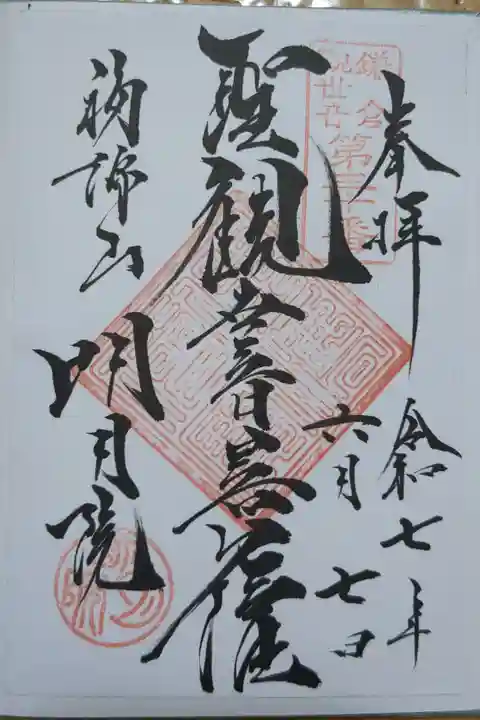 奉拝
令和七年
六月
七日
鎌倉
観世音
第三十番
聖観世音菩薩
福源山
明月院